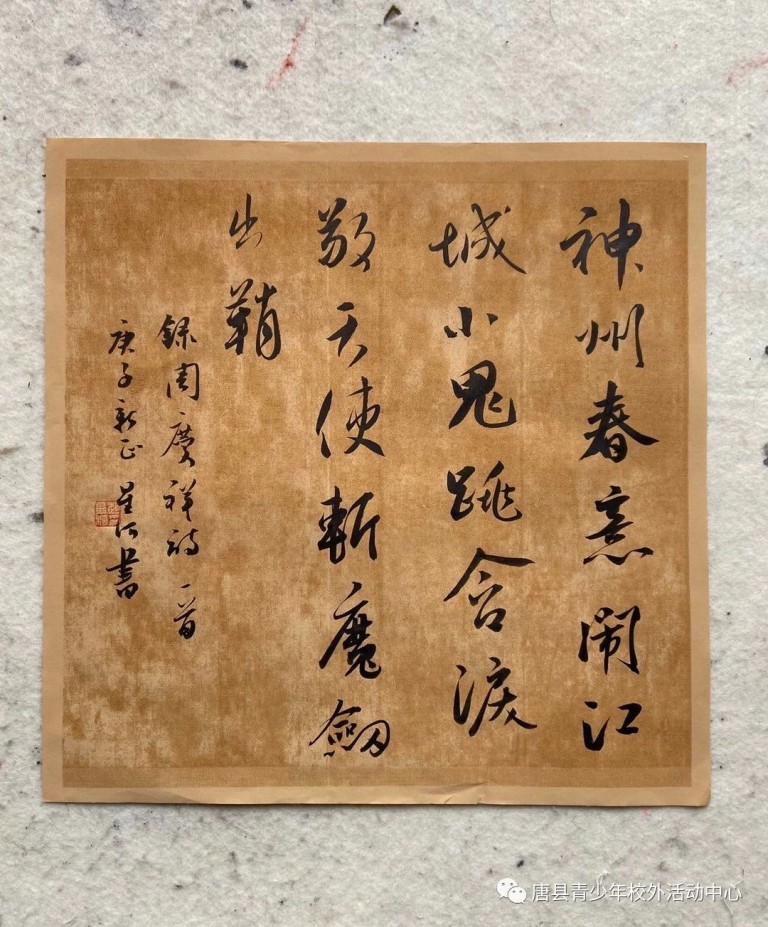 神州春意闹江
城小鬼跳含淚
敬天使斬魔劒
出鞘
録周廣祥詩一首
庚子新正 星河書
唐县青少年校外活动中心